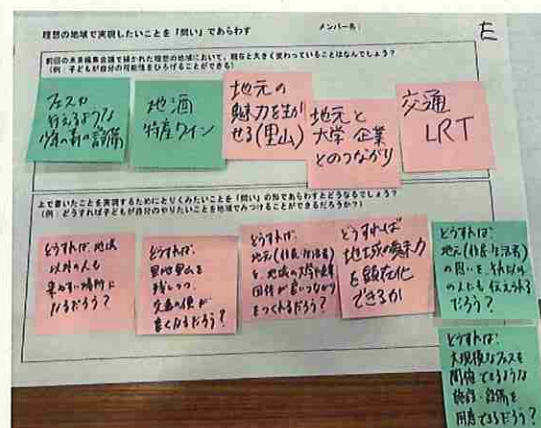 理想の地域で実現したいことを「問い」であらわす
メンバー名:
E
前回の未来編集会議で描かれた理想の地域において、現在と大きく変わっていることはなんでしょう?
(例:子どもが自分の可能性をひろげることができる)
フェスが
行えるような
設備
地酒
特産ワイン
地元の
魅力を生か
せる(里山)
地元と
大学 企業
とのつながり
交通
LRT
上で書いたことを実現するためにとりくみたいことを「問い」の形であらわすとどうなるでしょう?
(例:どうすれば子どもが自分のやりたいことを地域でみつけることができるだろうか?)
どうすれば、地域
以外の人も
来やすい場所に
なるだろう?
どうすれば
里地里山を
残しつつ、
交通の便が
良くなるだろう?
どうすれば、
地元(住民・生活者)
と、地域の大学や企業
団体が良いつながり
をつくれるだろう?
どうすれば
地域の魅力
を顕在化
できるか
どうすれば、
地元(住民・生活者)
の思いを、それ以外
の人にも伝えられる
だろう?
どうすれば
大規模なフェスを
開催できるような
施設・設備を
用意できるだろう?